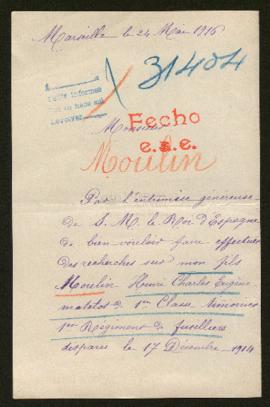 Marseille le 24 Mai 1916
31404
Monsieur
Fecho
e.s.e.
Moulin
Par l'entremise généreuse
de S. M. le Roi d'Espagne
de bien vouloir faire effectuer
des recherches sur mon fils
Moulin Henri Charles Eugène
matelot de 1re Classe
1er Régiment de fusilliers
disparu le 17 Décembre 1914